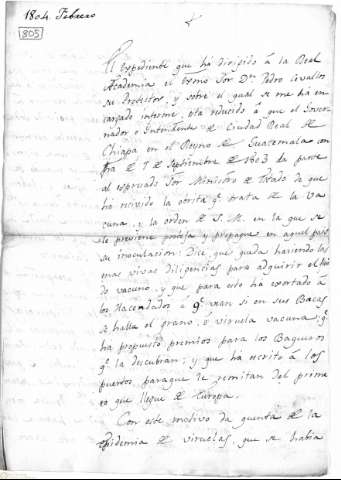 1804. Febrero
805
El expediente que ha dirigido â la Real
Academia el exmo Sor Dn Pedro Cevallos
su Protector, y sobre el qual se me ha en
cargado informe, está reducido â que el Gover
nador è Intendente de Ciudad Real de
Chiapa en el Reyno de Guatemala con
fha de 7 de Septiembre de 1803 da parte
al expresado Sor Ministro de Estado de que
ha recivido la obrita q.e trata de la va
cuna, y la orden de S. M. en la que se
le previene proteja y propague en aquel pais
su inoculacion: Dice, que queda haciendo las
mas vivas diligencias para adquirir el
do vacuno, y que para esto ha exortado â
los Hacendados â q.e vean si en sus Bacas
se halla el grano, ô viruela vacuna; q.e
ha propuesto premios para los Baqueros
q.e la descubran; y que ha escrito â los
puertos, paraque le remitan del prime
ro que llegue de Europa.
Con este motivo da quenta de la
epidemia de viruelas, que se habia